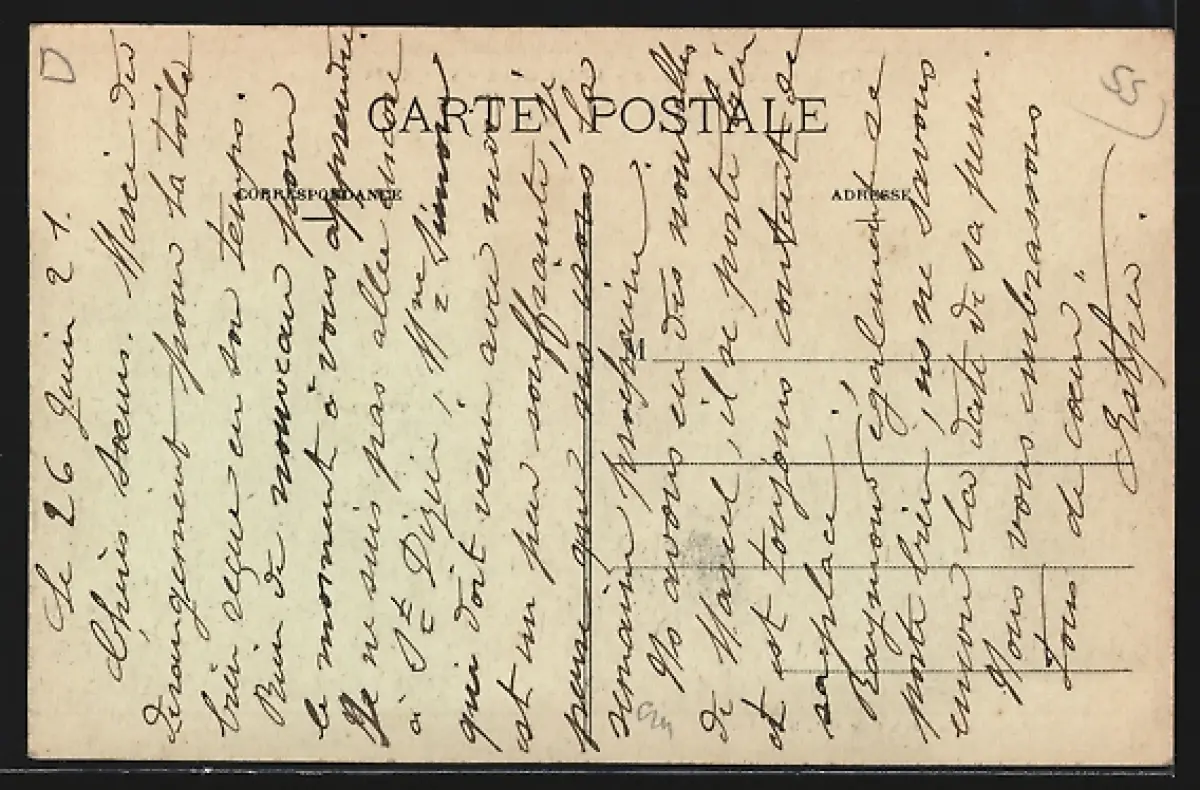 CARTE POSTALE
CORRESPONDANCE
ADRESSE
M
D
Le 26 Juin 21.
Chères sœurs. Merci du
dérangement pour la toile
bien reçue en son temps.
Rien de nouveau pour
le moment à vous apprendre
Je ne suis pas allée encore
à St Dizier, Mme Simon
qui doit venir avec moi
est un peu souffrante, je
pense que nous irons la
semaine prochaine.
Ns avons eu des nouvelles
de Marcel, il se porte bien
et est toujours content de
sa place.
Raymond également se
porte bien, ns ne savons
encore la date de sa perm.
Nous vous embrassons
tous de cœur
Esther.